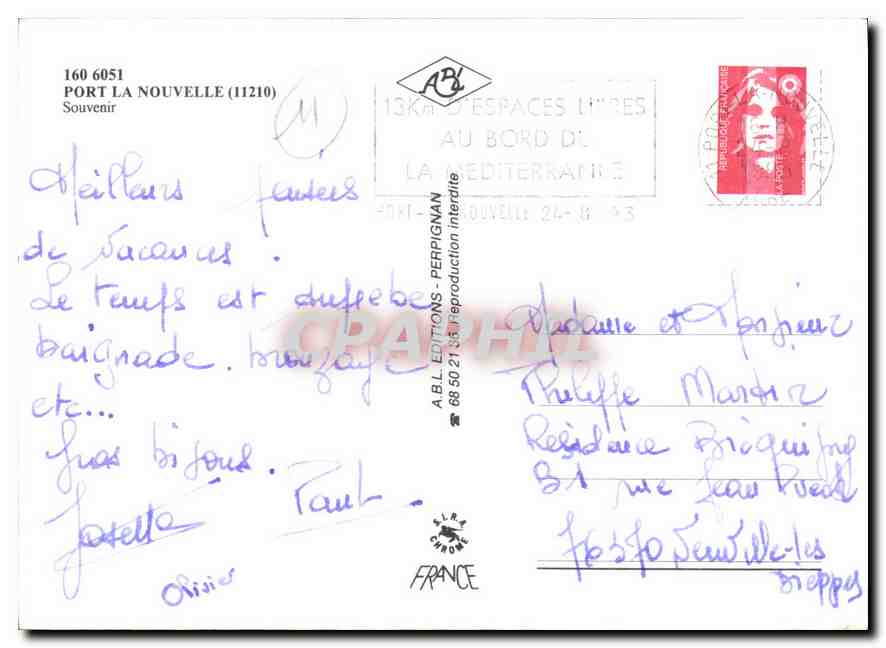 160 6051
PORT LA NOUVELLE (11210)
Souvenir
11
ABL
13KM D'ESPACES LIBRES
AU BORD DE
LA MEDITERRANEE
PORT- NOUVELLE 24-8 93
REPUBLIQUE FRANÇAISE
LA POSTE
Meilleurs pensées
de vacances.
Le temps est superbe
baignade. bronzage
etc...
Gros bisous.
Josette Paul.
Olivier
A.B.L. EDITIONS - PERPIGNAN
☎ 68 50 21 36 Reproduction interdite
CPAPHIL
S.L.R.A.
CHROME
FRANCE
Madame et Monsieur
Philippe Martin
Résidence
B1 rue Jean
76370 Neuville-les
Dieppe